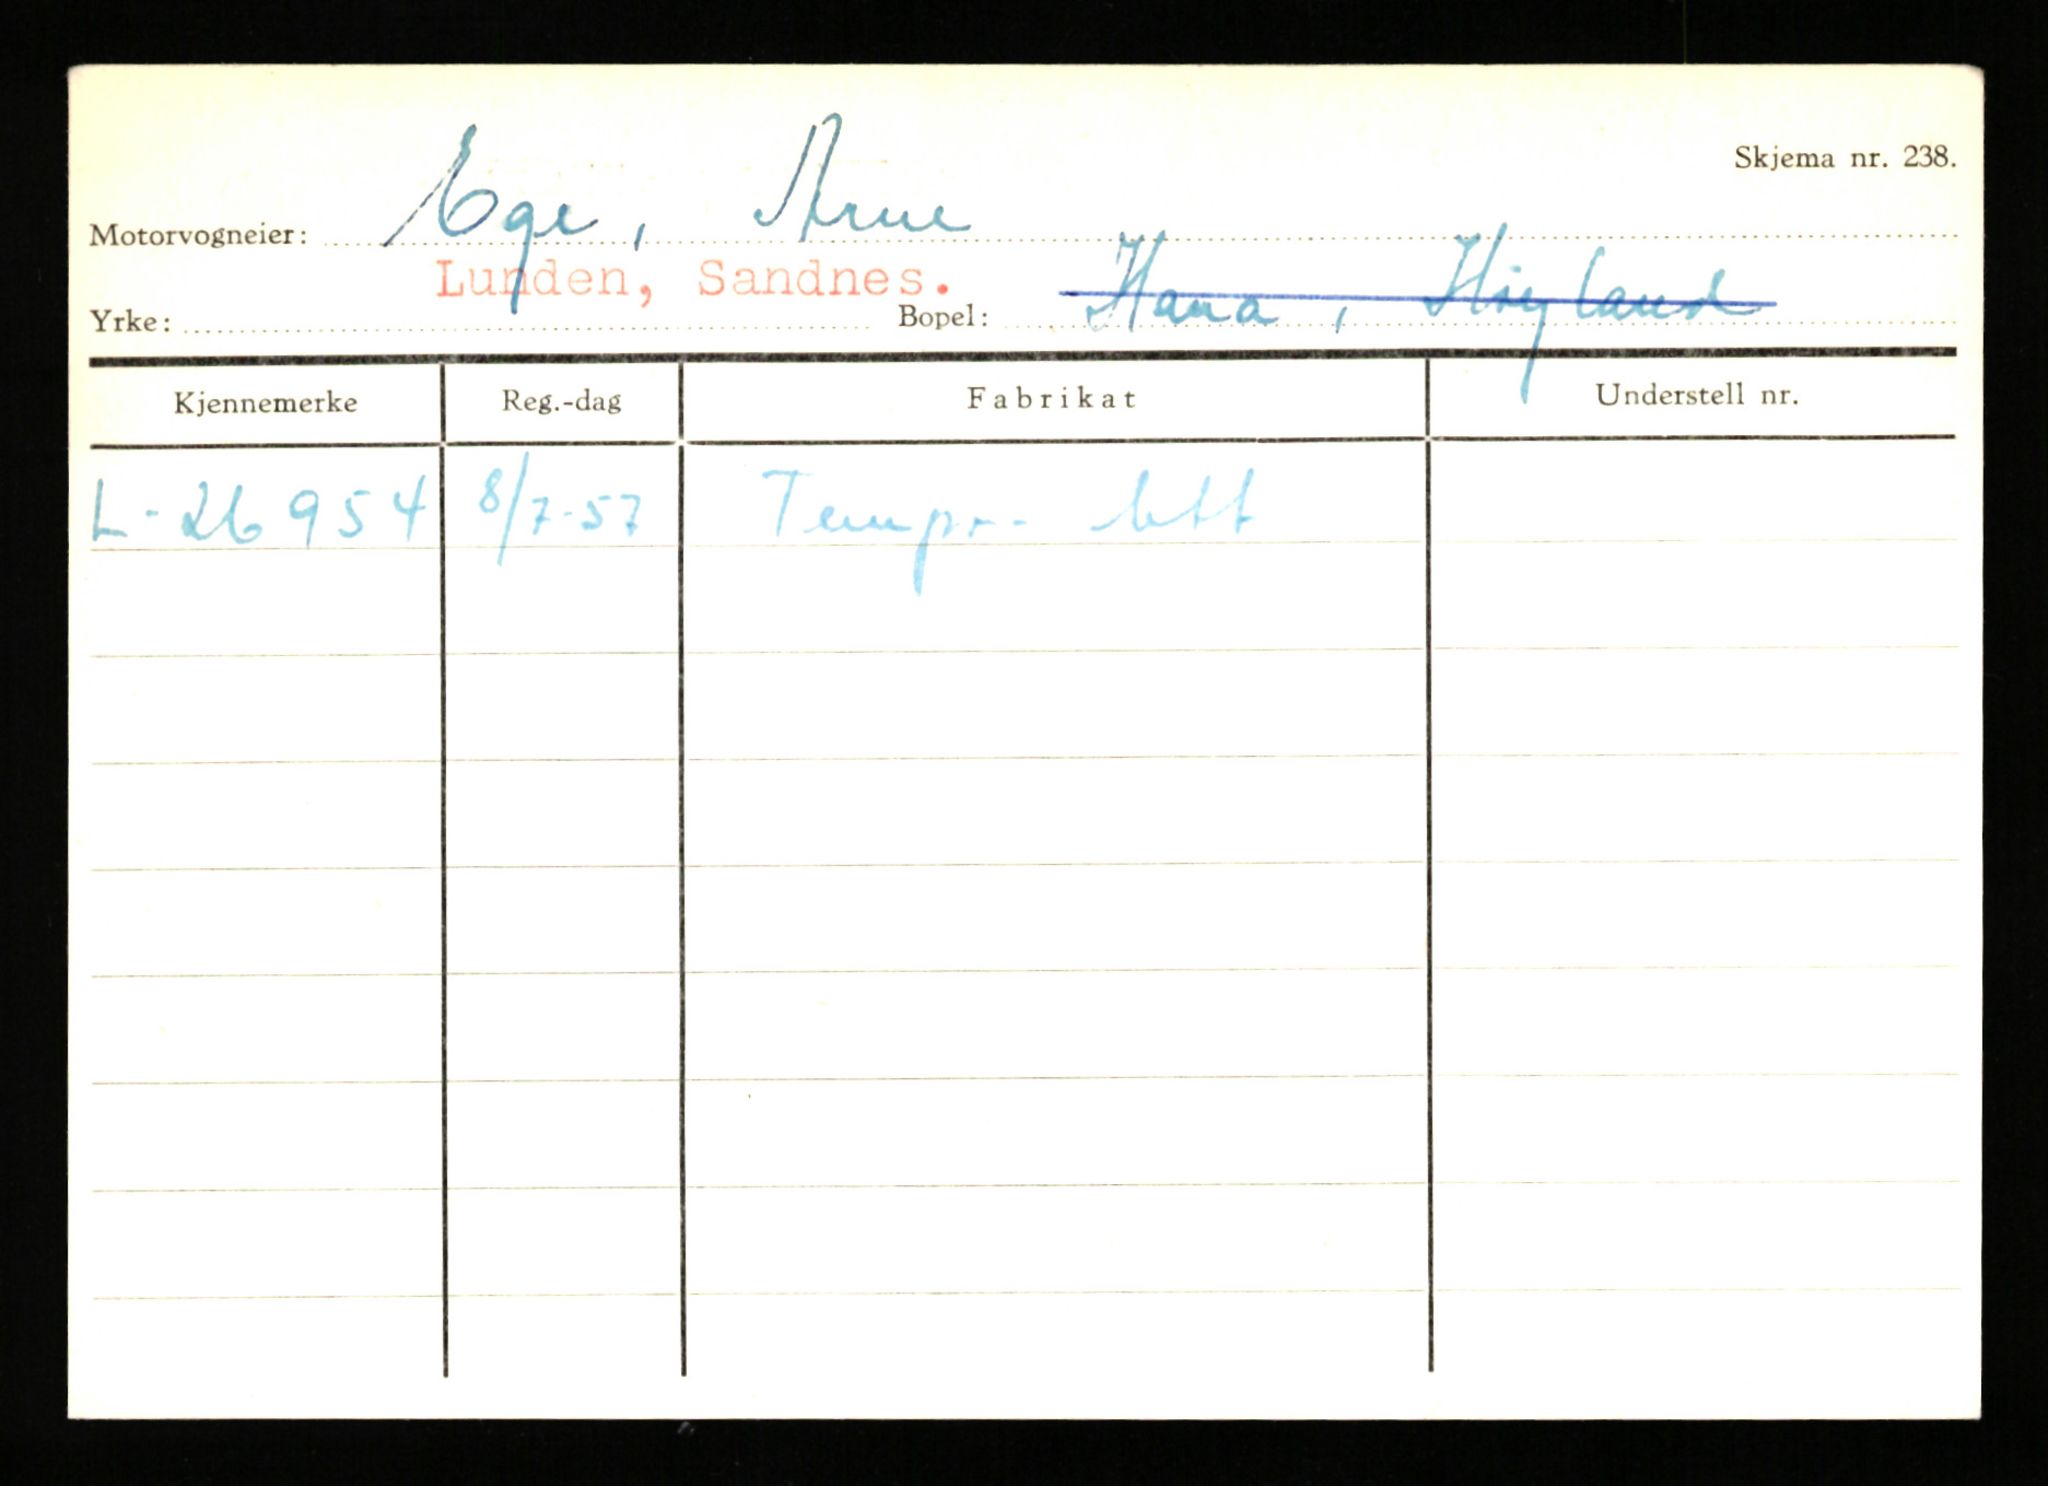 Skjema nr. 238.
Motorvogneier: Ege, Arne
Lunden, Sandnes.
Yrke: Bopel: Hana, Høyland
Kjennemerke Reg.-dag Fabrikat Understell nr.
L-26954 8/7-57 Tempo- lett